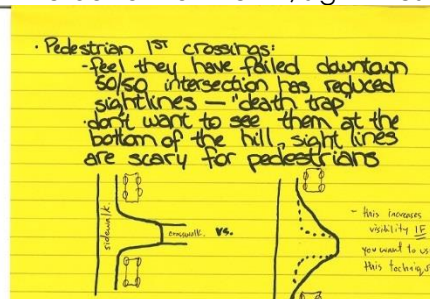 · Pedestrian 1ST crossings:
- feel they have failed downtown
50/50 intersection has reduced
sightlines — "death trap"
· don't want to see them at the
bottom of the hill, sight lines
are scary for pedestrians
sidewalk.
crosswalk.
vs.
- this increases
visibility IF
you want to us
this techniq